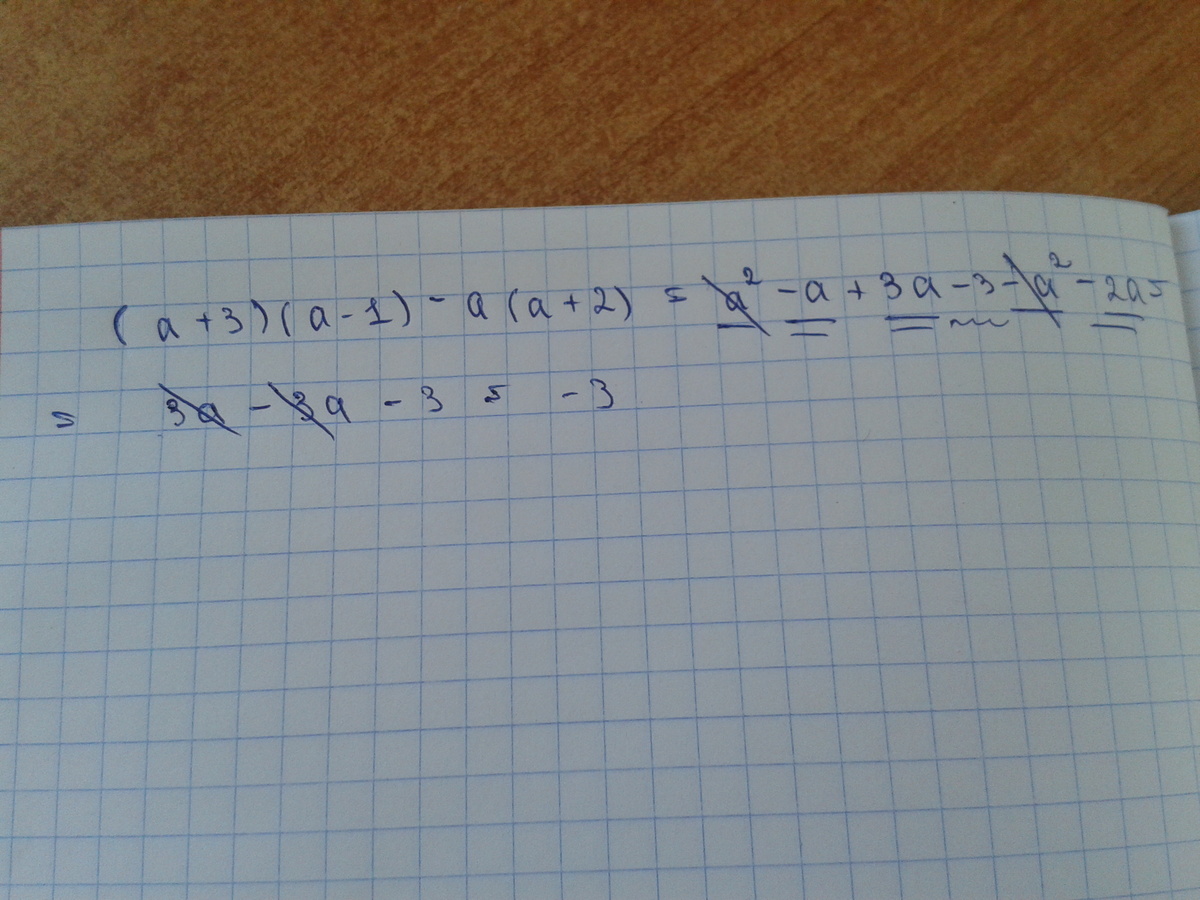 (a+3)(a-1) - a(a+2) = a² - a + 3a - 3 - a² - 2a =
= 3a - 3a - 3 = -3